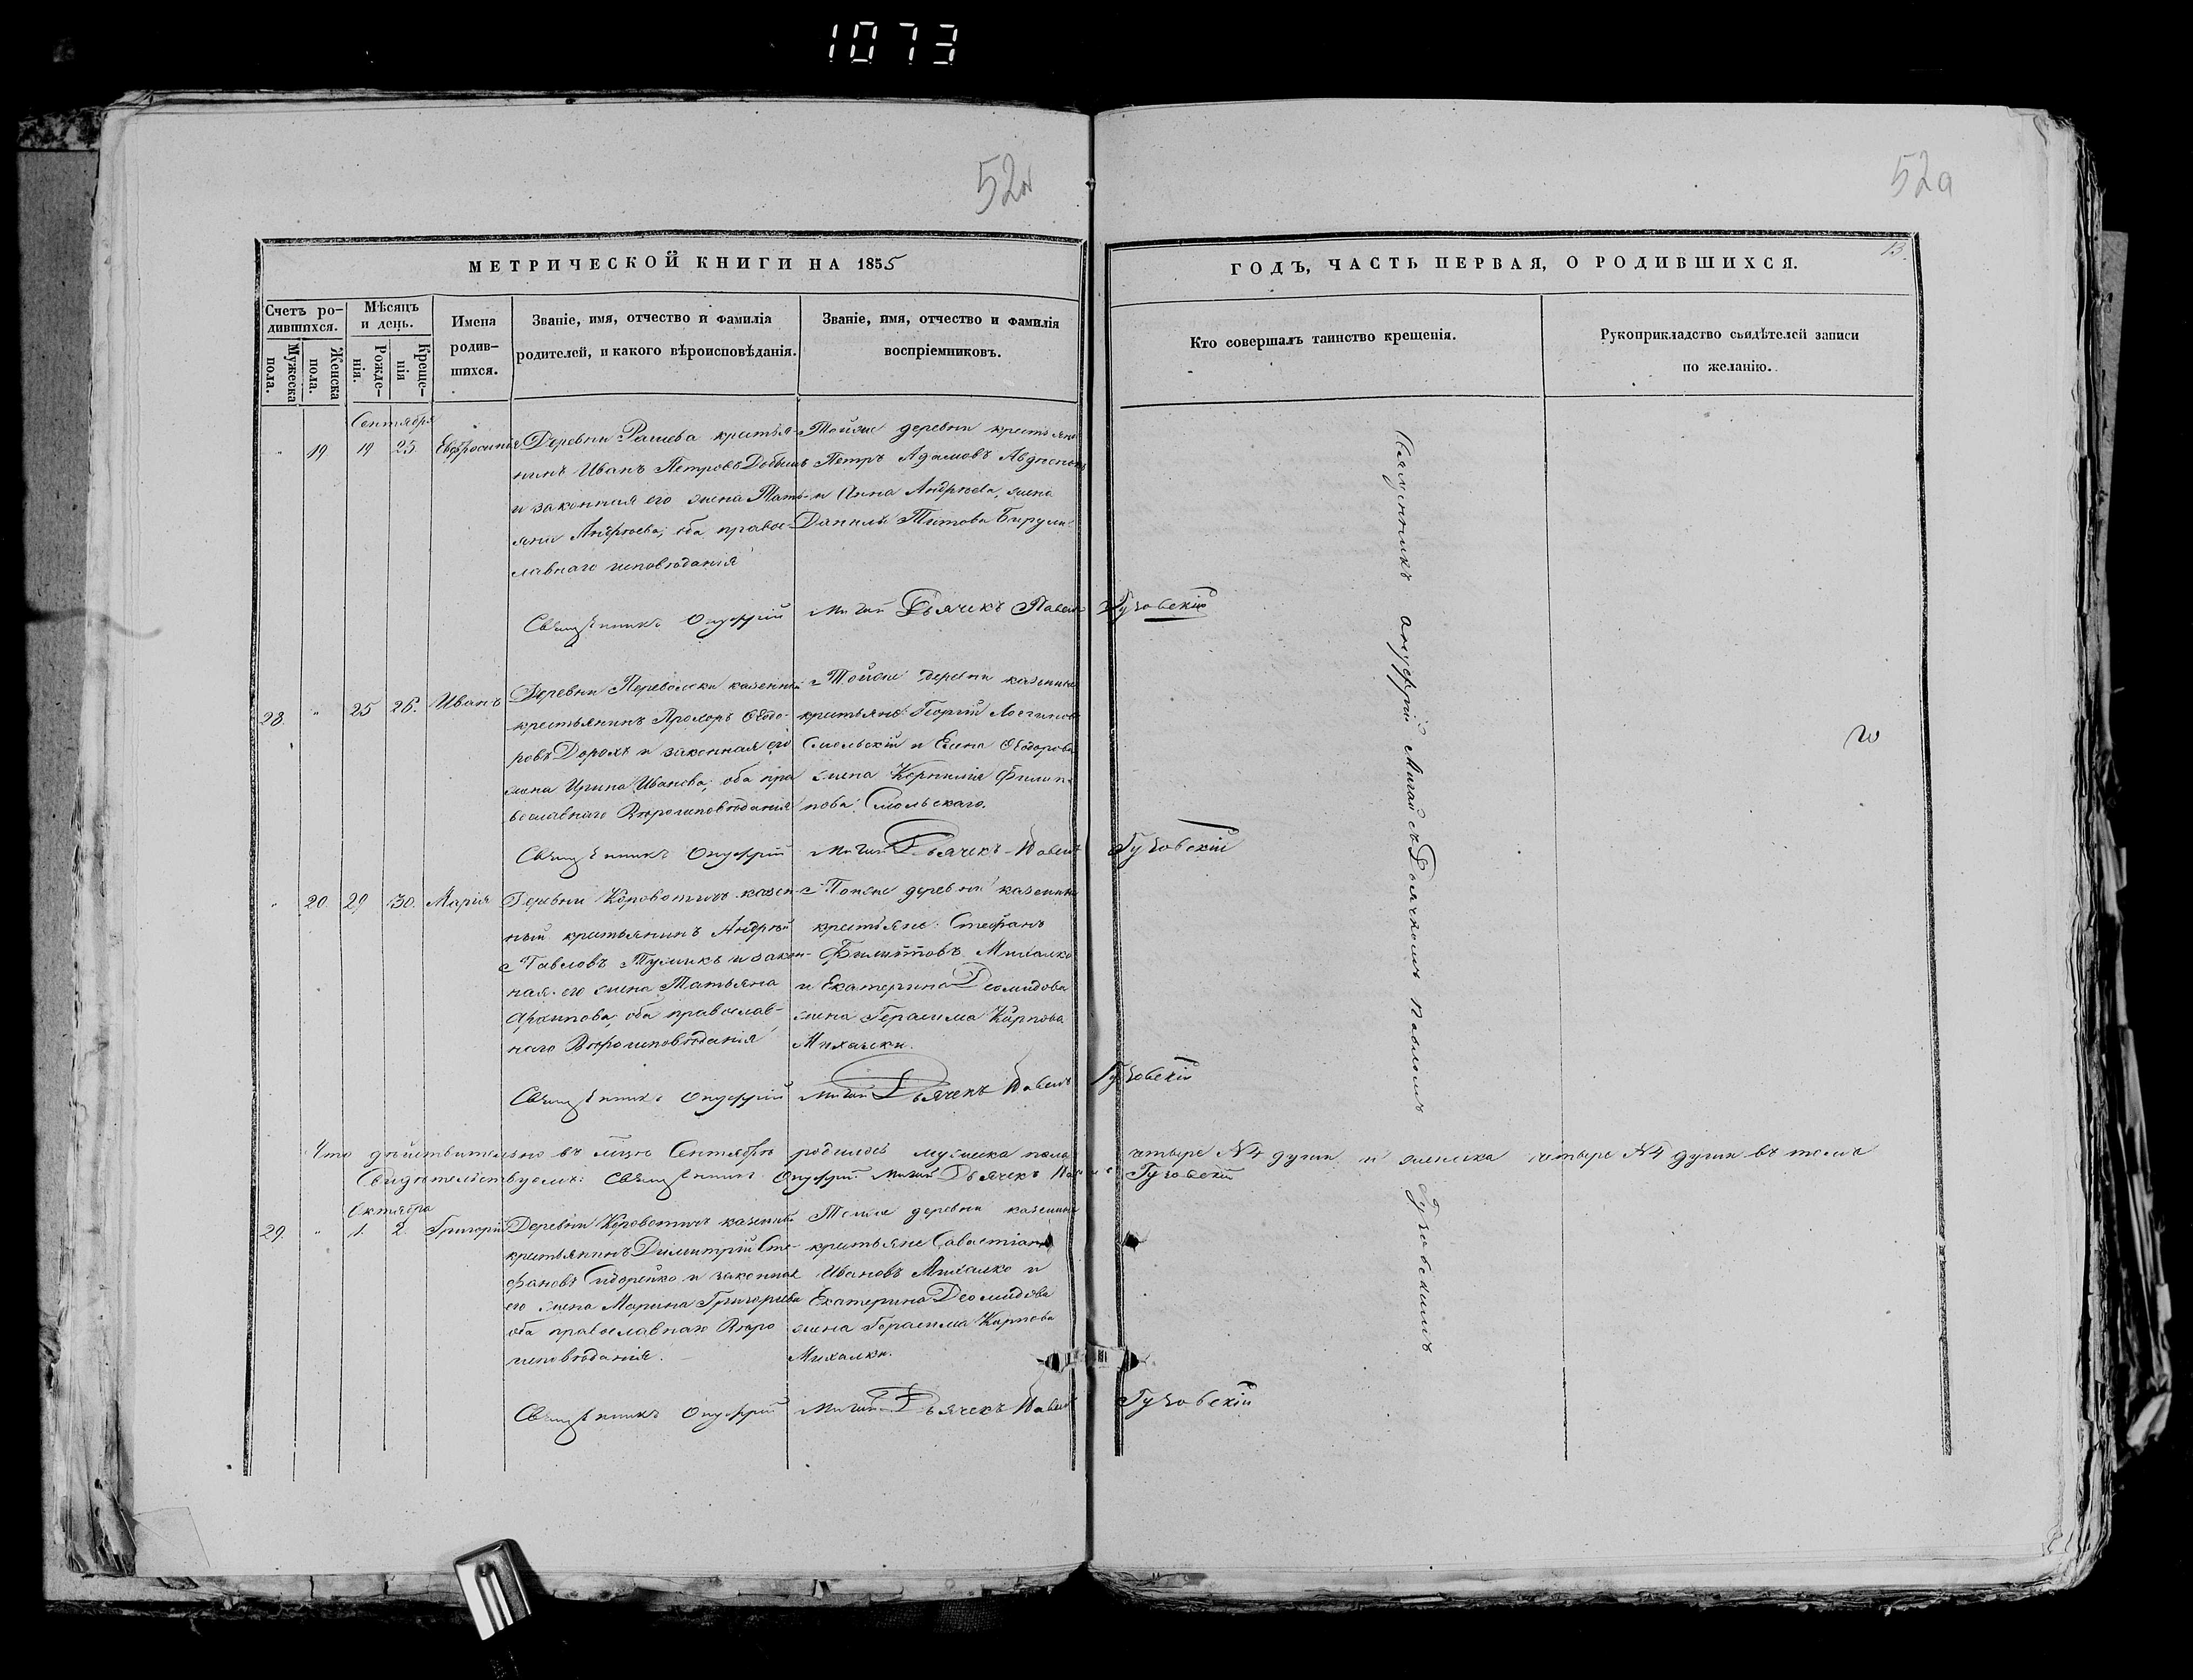 1073
52а
52а
13.
МЕТРИЧЕСКОЙ КНИГИ НА 1855
ГОДЪ, ЧАСТЬ ПЕРВАЯ, О РОДИВШИХСЯ.
Счетъ ро-
дившихся.
Мужеска
пола.
Женска
пола.
Мѣсяцъ
и день.
Рожде-
нія.
Креще-
нія
Имена
родив-
шихся.
Званіе, имя, отчество и фамилія
родителей, и какого вѣроисповѣданія.
Званіе, имя, отчество и фамилія
воспріемниковъ.
Кто совершалъ таинство крещенія.
Рукоприкладство свидѣтелей записи
по желанію.
Сентября
19 19 25 Евфросинія
Деревни Рашева крестья-
нинъ Иванъ Петровъ
и законная его жена Тать-
яна Андреева, оба правос-
лавнаго исповѣданія
Тойже деревни крестьяне
Петръ Адамовъ
и Анна Андреева, жена
Даніила Титова
Священникъ Онуфрій Мигай Дьячекъ Павелъ Гузовскій
28. 25 26. Иванъ
Деревни Переволоки казенный
крестьянинъ Прохоръ Ѳеодо-
ровъ Дорохъ и законная его
жена Ирина Иванова, оба пра
вославнаго Вѣроисповѣданія
Тойже деревни казенные
крестьяне: Георгій Логгиновъ
Смольскій и Елена Ѳеодорова
жена Корнилія Филип-
пова Смольскаго.
Священникъ Онуфрій Мигай Дьячекъ Павелъ Гузовскій
20. 29 30. Марія
Деревни Короботичъ казен-
ный крестьянинъ Андрей
Павловъ и закон-
ная его жена Татьяна
Архипова, оба православ-
наго Вѣроисповѣданія
Тойже деревни казенные
крестьяне: Стефанъ
Филиповъ Михалко
и Екатерина Деомидова
жена Герасима Карпова
Михалки.
Священникъ Онуфрій Мигай Дьячекъ Павелъ Гузовскій
Что дѣйствительно въ м-цѣ Сентябрѣ родилось мужеска пола четыре №4 души и женска четыре №4 души въ томъ
Свидѣтельствуемъ: Священникъ Онуфрій Мигай Дьячекъ Павелъ Гузовскій
Октября
29. 1. 2. Григорій
Деревни Короботичъ казенный
крестьянинъ Димитрій Сте-
фановъ Сидорейко и законная
его жена Марина Григорьева
оба православнаго Вѣро
исповѣданія.
Тойже деревни казенные
крестьяне Савастіанъ
Ивановъ Михалко и
Екатерина Деомидова
жена Герасима Карпова
Михалки.
Священникъ Онуфрій Мигай Дьячекъ Павелъ Гузовскій
Священникъ Онуфрій Мигай съ Дьячкомъ Павломъ Гузовскимъ